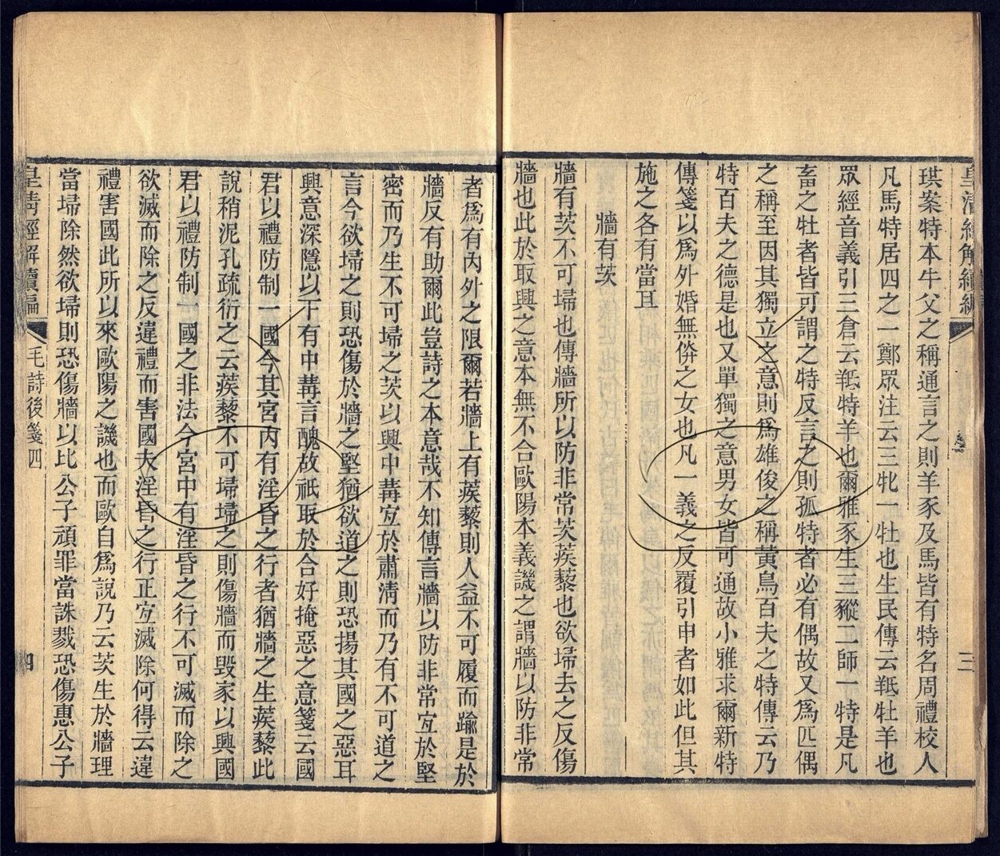 皇清經解續編
三
珙案特本牛父之稱通言之則羊豕及馬皆有特名周禮校人
凡馬特居四之一鄭眾注云三牝一牡也生民傳云羝牡羊也
眾經音義引三倉云羝特羊也爾雅豕生三豵二師一特是凡
畜之牡者皆可謂之特反言之則孤特者必有偶故又爲匹偶
之稱至因其獨立之意則爲雄俊之稱黃鳥百夫之特傳云乃
特百夫之德是也又單獨之意男女皆可通故小雅求爾新特
傳箋以爲外婚無傡之女也凡一義之反覆引申者如此但其
施之各有當耳
牆有茨
牆有茨不可埽也傳牆所以防非常茨蒺藜也欲埽去之反傷
牆也此於取興之意本無不合歐陽本義譏之謂牆以防非常
者爲有內外之限爾若牆上有蒺藜則人益不可履而踰是於
牆反有助爾此豈詩之本意哉不知傳言牆以防非常宜於堅
密而乃生不可埽之茨以興中冓宜於肅清而乃有不可道之
言今欲埽之則恐傷於牆之堅猶欲道之則恐揚其國之惡耳
興意深隱以下有中冓言醜故祇取於合好掩惡之意箋云國
君以禮防制一國今其宮內有淫昏之行者猶牆之生蒺藜此
說稍泥孔疏衍之云蒺藜不可埽埽之則傷牆而毀家以興國
君以禮防制一國之非法今宮中有淫昏之行不可滅而除之
欲滅而除之反違禮而害國夫淫昏之行正宜滅除何得云違
禮害國此所以來歐陽之譏也而歐自爲說乃云茨生於牆理
當埽除然欲埽則恐傷牆以比公子頑罪當誅戮恐傷惠公子
皇清經解續編
毛詩後箋四
四